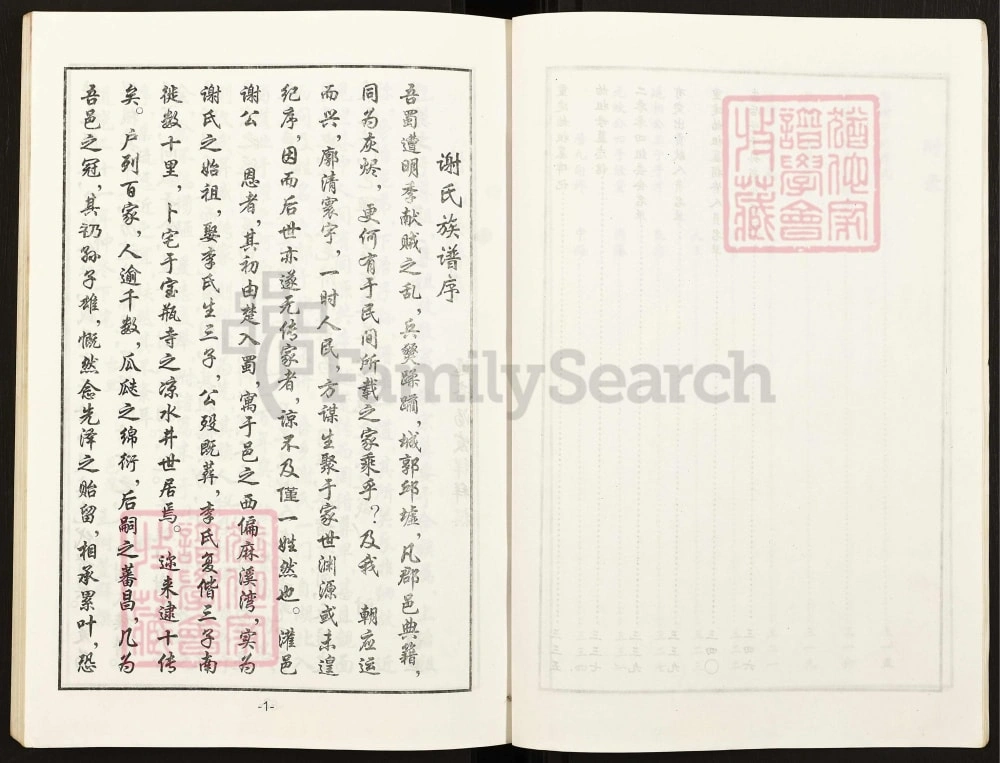 谢氏族谱序
吾蜀遭明季献贼之乱，兵燹蹂躏，城郭邱墟，凡郡邑典籍，
同为灰烬，更何有于民间所载之家乘乎？及我　朝应运
而兴，廓清寰宇，一时人民，方谋生聚于家世渊源或未遑
纪序，因而后世亦遂无传家者，谅不及僅一姓然也。灌邑
谢公　恩者，其初由楚入蜀，寓于邑之西偏麻溪湾，实为
谢氏之始祖，娶李氏生三子，公殁既葬，李氏复偕三子南
徙数十里，卜宅于宝瓶寺之凉水井世居焉。迩来逮十传
矣。户列百家，人逾千数，瓜瓞之绵衍，后嗣之蕃昌，几为
吾邑之冠，其礽孙子雄，慨然念先泽之贻留，相承累叶，恐
-1-
FamilySearch